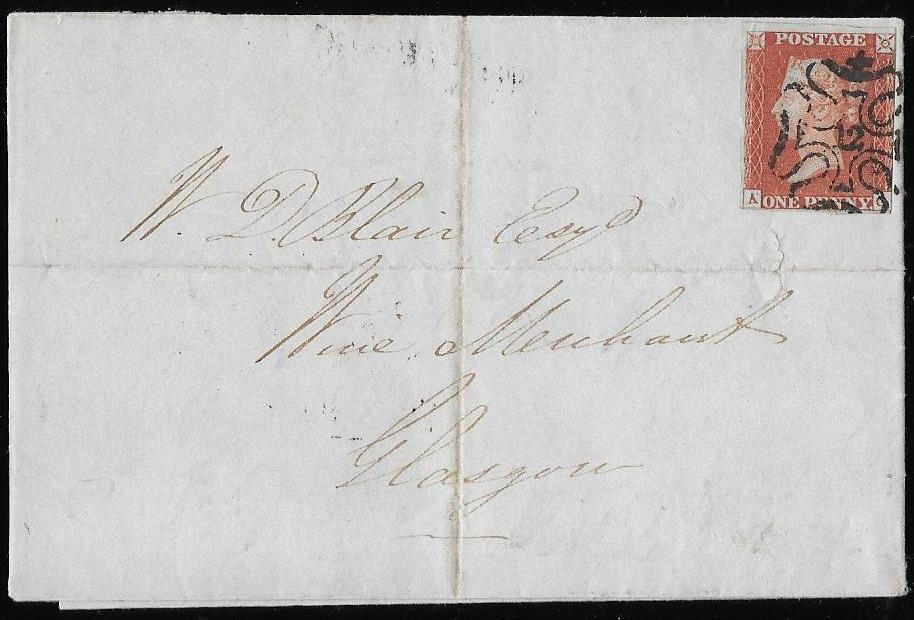 POSTAGE
12
A ONE PENNY.
W. D. Blair Esqr
Wine Merchant
Glasgow